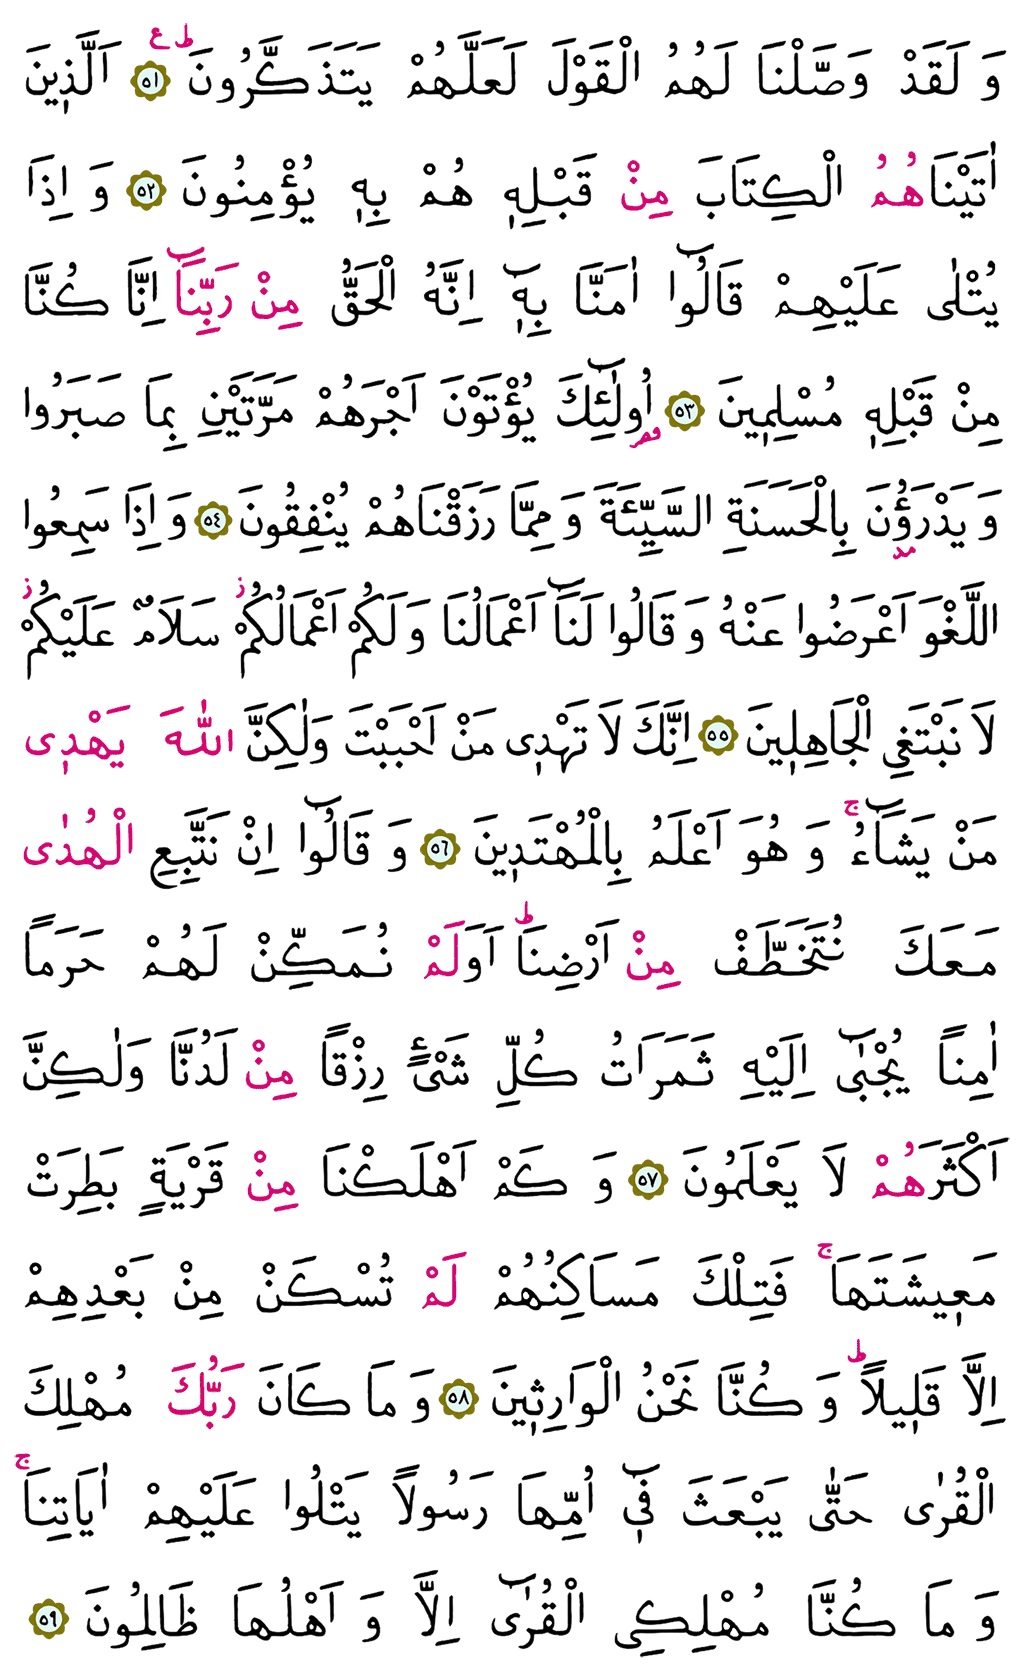 وَ لَقَدْ وَصَّلْنَا لَهُمُ الْقَوْلَ لَعَلَّهُمْ يَتَذَكَّرُونَ ط ع ٥١ اَلَّذٖينَ
اٰتَيْنَاهُمُ الْكِتَابَ مِنْ قَبْلِهٖ هُمْ بِهٖ يُؤْمِنُونَ ٥٢ وَ اِذَا
يُتْلٰى عَلَيْهِمْ قَالُٓوا اٰمَنَّا بِهٖٓ اِنَّهُ الْحَقُّ مِنْ رَبِّنَٓا اِنَّا كُنَّا
مِنْ قَبْلِهٖ مُسْلِمٖينَ ٥٣ اُولٰٓئِكَ يُؤْتَوْنَ اَجْرَهُمْ مَرَّتَيْنِ بِمَا صَبَرُوا
وَ يَدْرَؤُنَ بِالْحَسَنَةِ السَّيِّئَةَ وَ مِمَّا رَزَقْنَاهُمْ يُنْفِقُونَ ٥٤ وَ اِذَا سَمِعُوا
اللَّغْوَ اَعْرَضُوا عَنْهُ وَ قَالُوا لَنَٓا اَعْمَالُنَا وَ لَكُمْ اَعْمَالُكُمْ ز سَلَامٌ عَلَيْكُمْ ز
لَا نَبْتَغِي الْجَاهِلٖينَ ٥٥ اِنَّكَ لَا تَهْدٖى مَنْ اَحْبَبْتَ وَلٰكِنَّ اللّٰهَ يَهْدٖى
مَنْ يَشَٓاءُ ج وَ هُوَ اَعْلَمُ بِالْمُهْتَدٖينَ ٥٦ وَ قَالُٓوا اِنْ نَتَّبِعِ الْهُدٰى
مَعَكَ نُتَخَطَّفْ مِنْ اَرْضِنَا ط اَوَلَمْ نُمَكِّنْ لَهُمْ حَرَمًا
اٰمِنًا يُجْبٰٓى اِلَيْهِ ثَمَرَاتُ كُلِّ شَیْءٍ رِزْقًا مِنْ لَدُنَّا وَلٰكِنَّ
اَكْثَرَهُمْ لَا يَعْلَمُونَ ٥٧ وَ كَمْ اَهْلَكْنَا مِنْ قَرْيَةٍ بَطِرَتْ
مَعٖيشَتَهَا ج فَتِلْكَ مَسَاكِنُهُمْ لَمْ تُسْكَنْ مِنْ بَعْدِهِمْ
اِلَّا قَلٖيلًا ط وَ كُنَّا نَحْنُ الْوَارِثٖينَ ٥٨ وَ مَا كَانَ رَبُّكَ مُهْلِكَ
الْقُرٰى حَتّٰى يَبْعَثَ فٖٓى اُمِّهَا رَسُولًا يَتْلُوا عَلَيْهِمْ اٰيَاتِنَا ج
وَ مَا كُنَّا مُهْلِكِى الْقُرٰٓى اِلَّا وَ اَهْلُهَا ظَالِمُونَ ٥٩